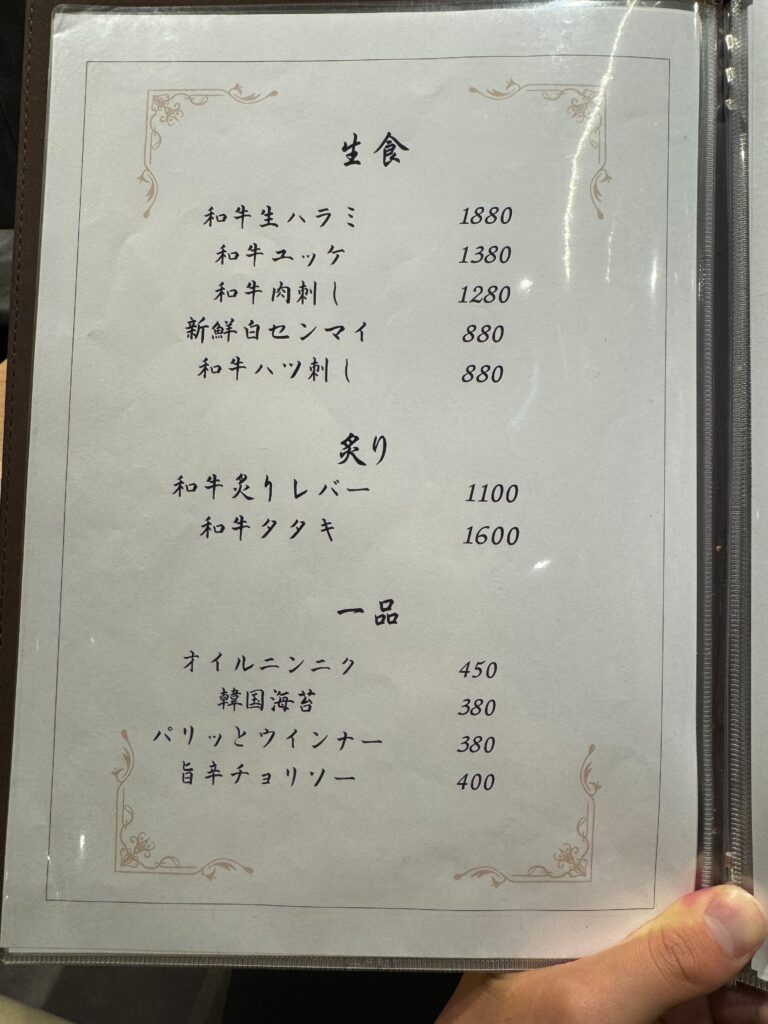 生食
和牛生ハラミ 1880
和牛ユッケ 1380
和牛肉刺し 1280
新鮮白センマイ 880
和牛ハツ刺し 880
炙り
和牛炙りレバー 1100
和牛タタキ 1600
一品
オイルニンニク 450
韓国海苔 380
パリッとウインナー 380
旨辛チョリソー 400